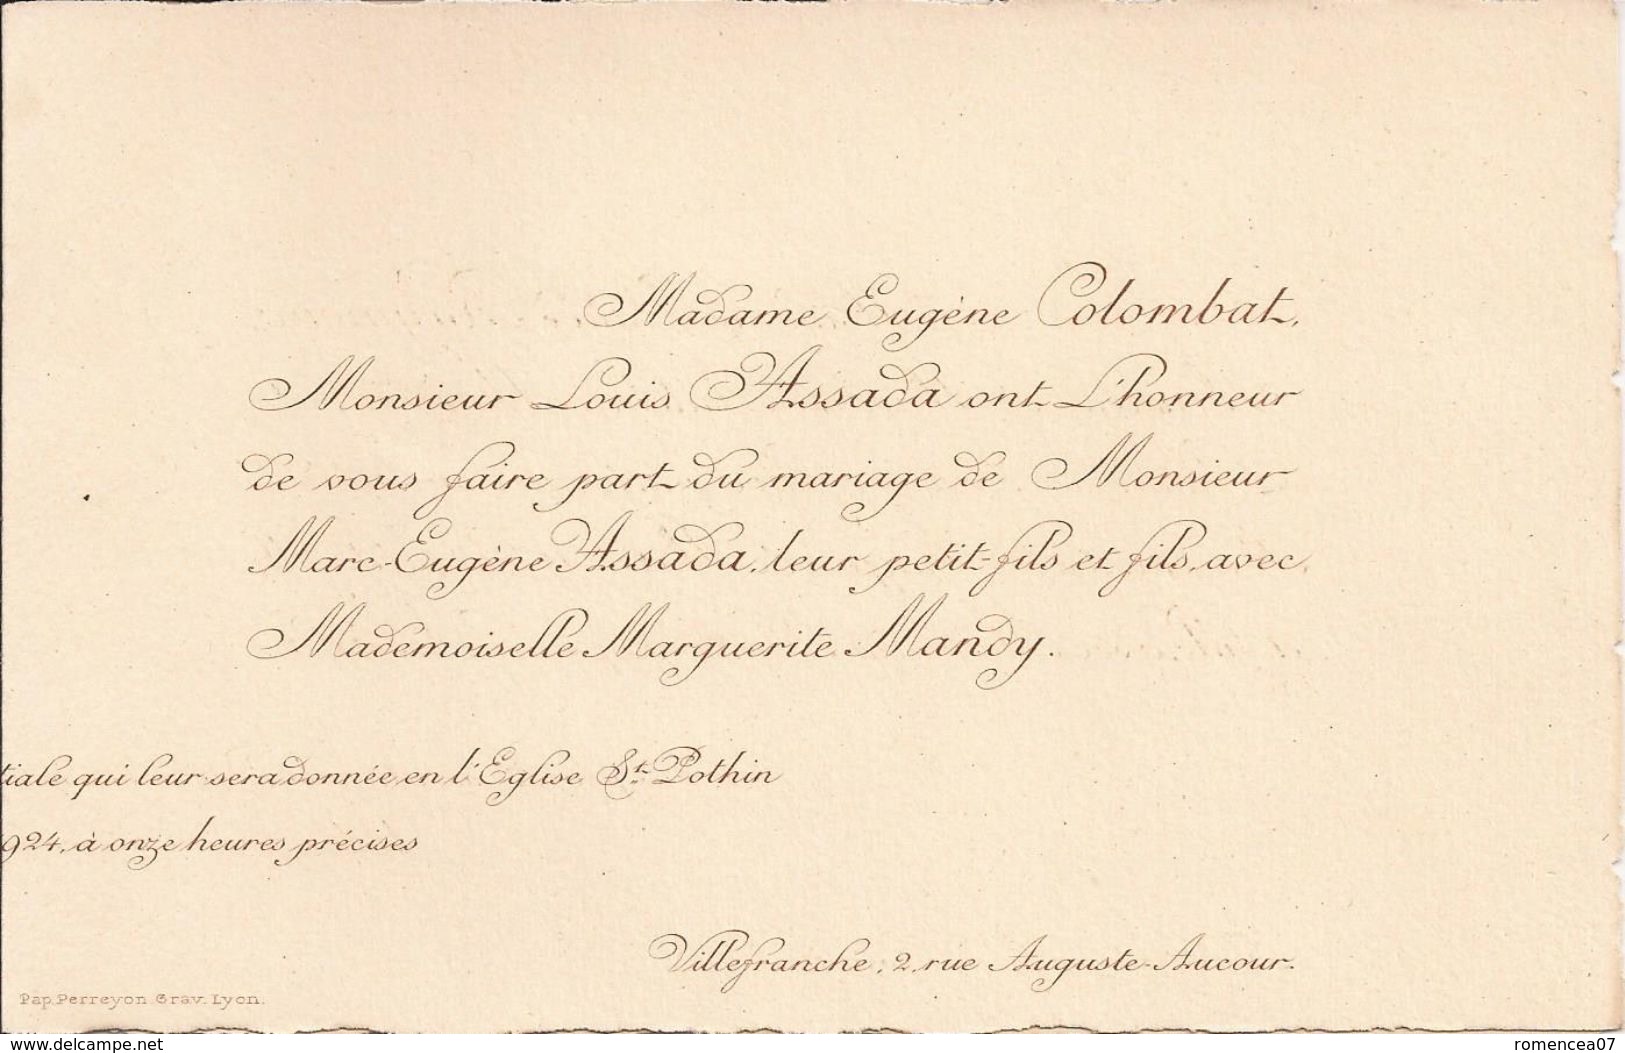 Madame Eugène Colombat,
Monsieur Louis Assada ont l'honneur
de vous faire part du mariage de Monsieur
Marc-Eugène Assada, leur petit-fils et fils, avec
Mademoiselle Marguerite Mandy.
tiale qui leur sera donnée en l'Eglise St. Pothin
924, à onze heures précises
Villefranche, 2, rue Auguste-Aucour.
Pap. Perreyon Grav. Lyon.
www.delcampe.net
romencea07